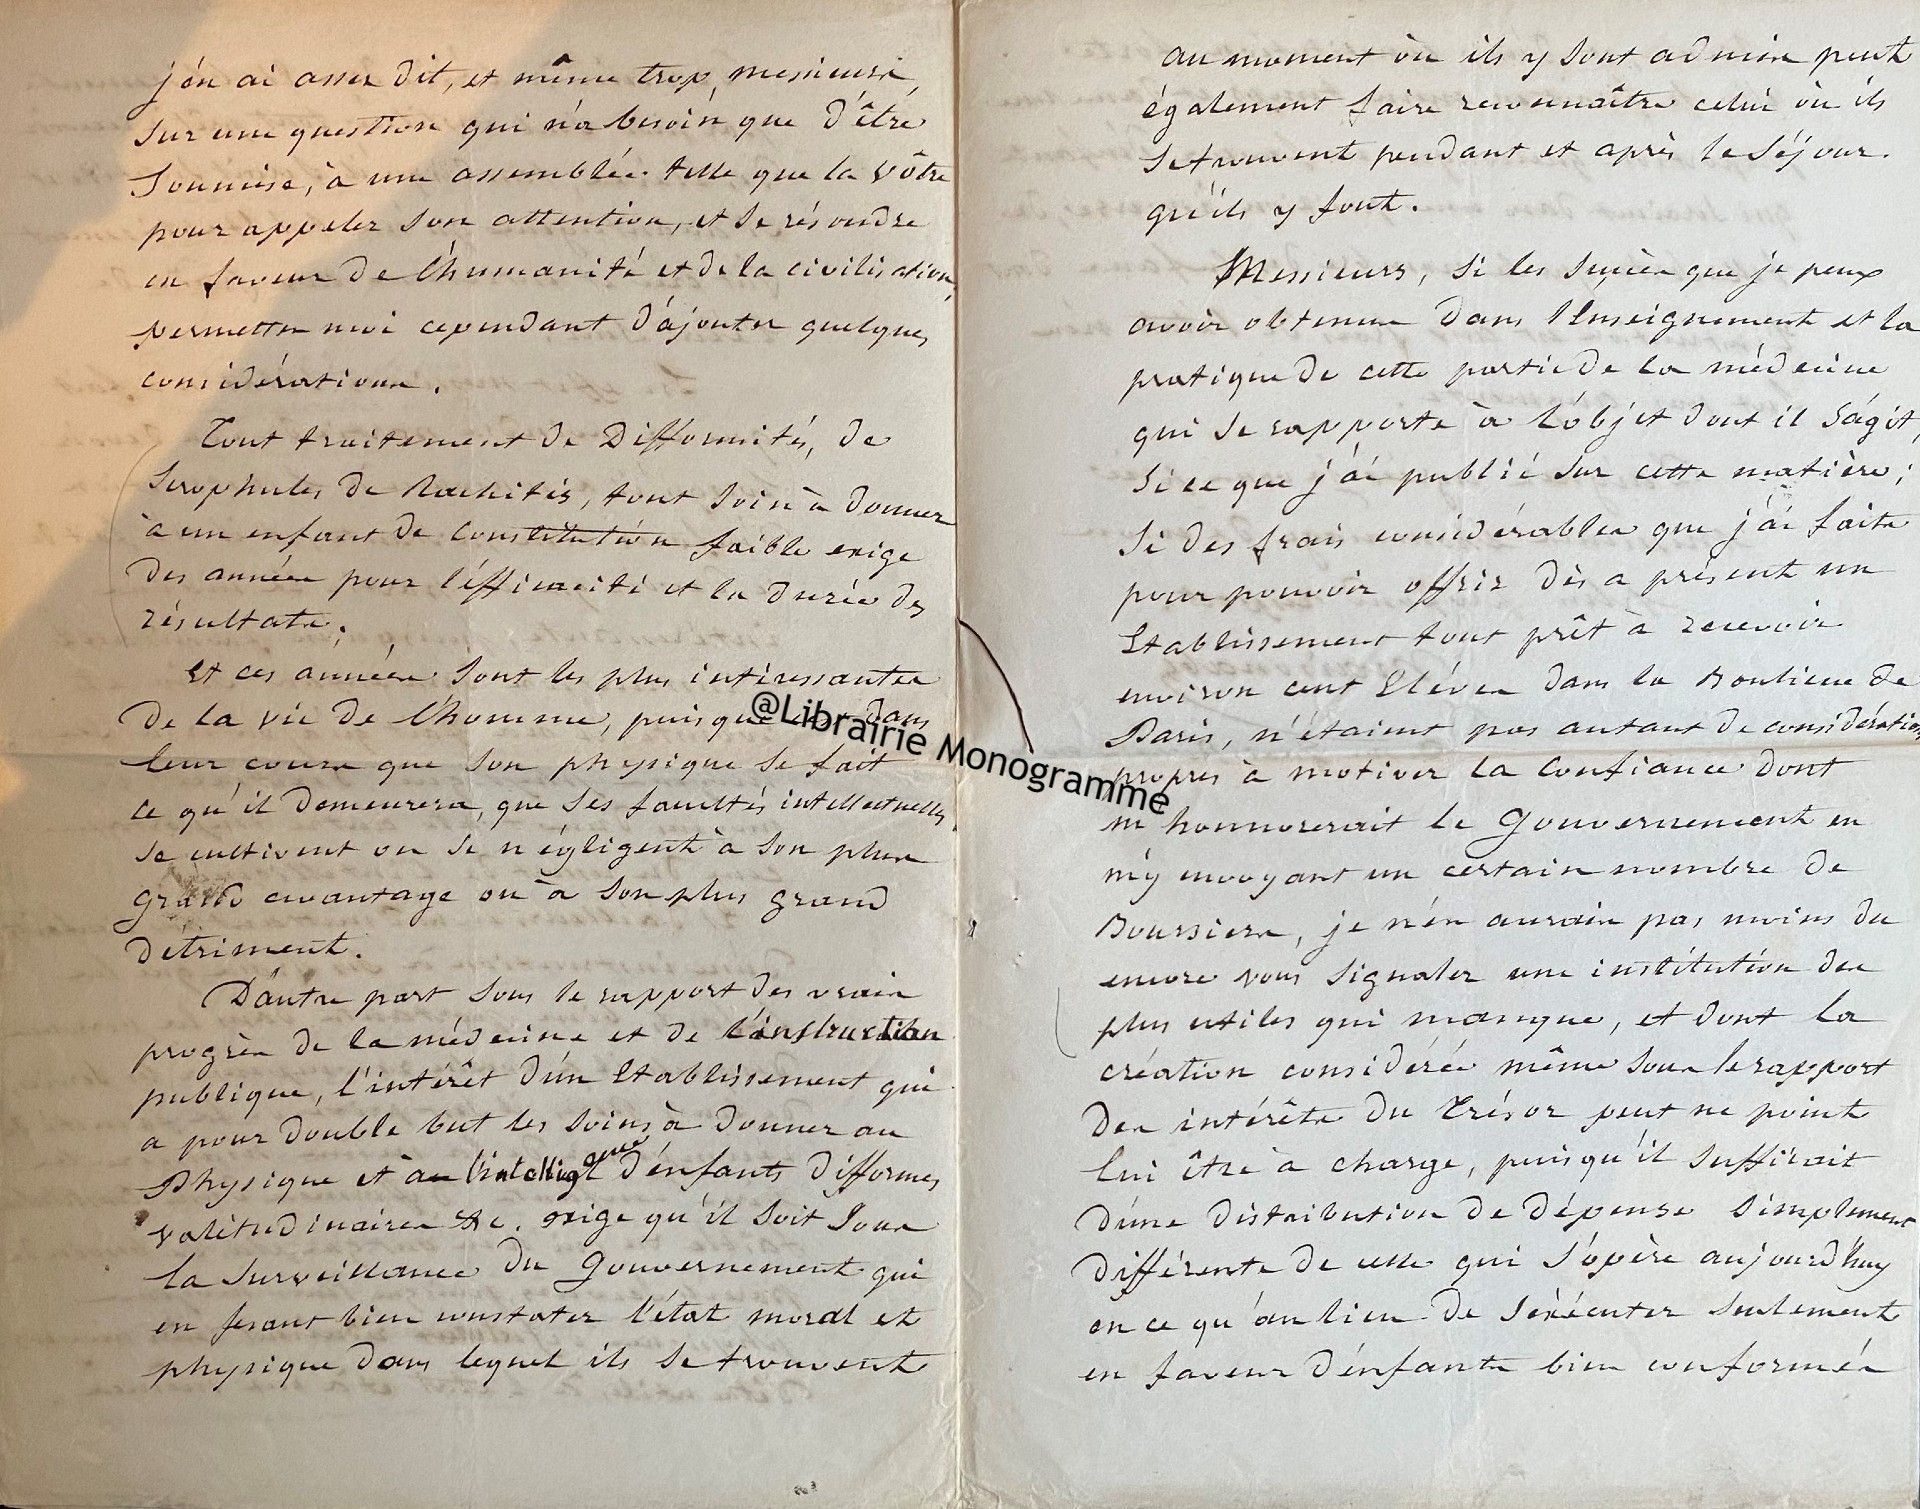 j'en ai assez dit, et même trop, messieurs,
sur une question qui n'a besoin que d'être
soumise, à une assemblée telle que la vôtre
pour appeler son attention, et se résoudre
en faveur de l'humanité et de la civilisation,
permettez moi cependant d'ajouter quelques
considérations.
Tout traitement de Difformités, de
Scrophules de Rachitis, tout soin à donner
à un enfant de constitution faible exige
des années pour l'éfficacité et la durée des
résultats.
Et ces années sont les plus intéressantes
de la vie de l'homme, puisque dans
leur cours que son physique se fait
ce qu'il demeurera, que ses facultés intellectuelles
se cultivent ou se négligent à son plus
grand avantage ou à son plus grand
détriment.
D'autre part sous le rapport des vrais
progrès de la médecine et de l'instruction
publique, l'intérêt d'un Etablissement qui
a pour double but les soins à donner au
Physique et à l'intelligence d'enfants difformes
valétudinaires &c. exige qu'il soit sous
la surveillance du Gouvernement qui
en fesant bien constater l'état moral et
physique dans lequel ils se trouvent
au moment où ils y sont admis peut
également faire reconnaître celui où ils
se trouvent pendant et après le séjour
qu'ils y font.
Messieurs, si les succès que je peux
avoir obtenus dans l'Enseignement et la
pratique de cette partie de la médecine
qui se rapporte à l'objet dont il s'agit,
si ce que j'ai publié sur cette matière;
si des frais considérables que j'ai faits
pour pouvoir offrir dès a présent un
Etablissement tout prêt à recevoir
environ cent Elèves dans la Banlieue de
Paris, n'étaient pas autant de considérations
propres à motiver la confiance dont
m'honnorerait le Gouvernement en
m'y envoyant un certain nombre de
Boursiers, je n'en aurais pas moins du
encore vous signaler une institution des
plus utiles qui manque, et dont la
création considérée même sous le rapport
des intérêts du Trésor peut ne point
lui être à charge, puisqu'il suffirait
d'une distribution de dépense simplement
différente de celle qui s'opère aujourd'huy
en ce qu'au lieu de s'exécuter seulement
en faveur d'enfants bien conformés
@Librairie Monogramme